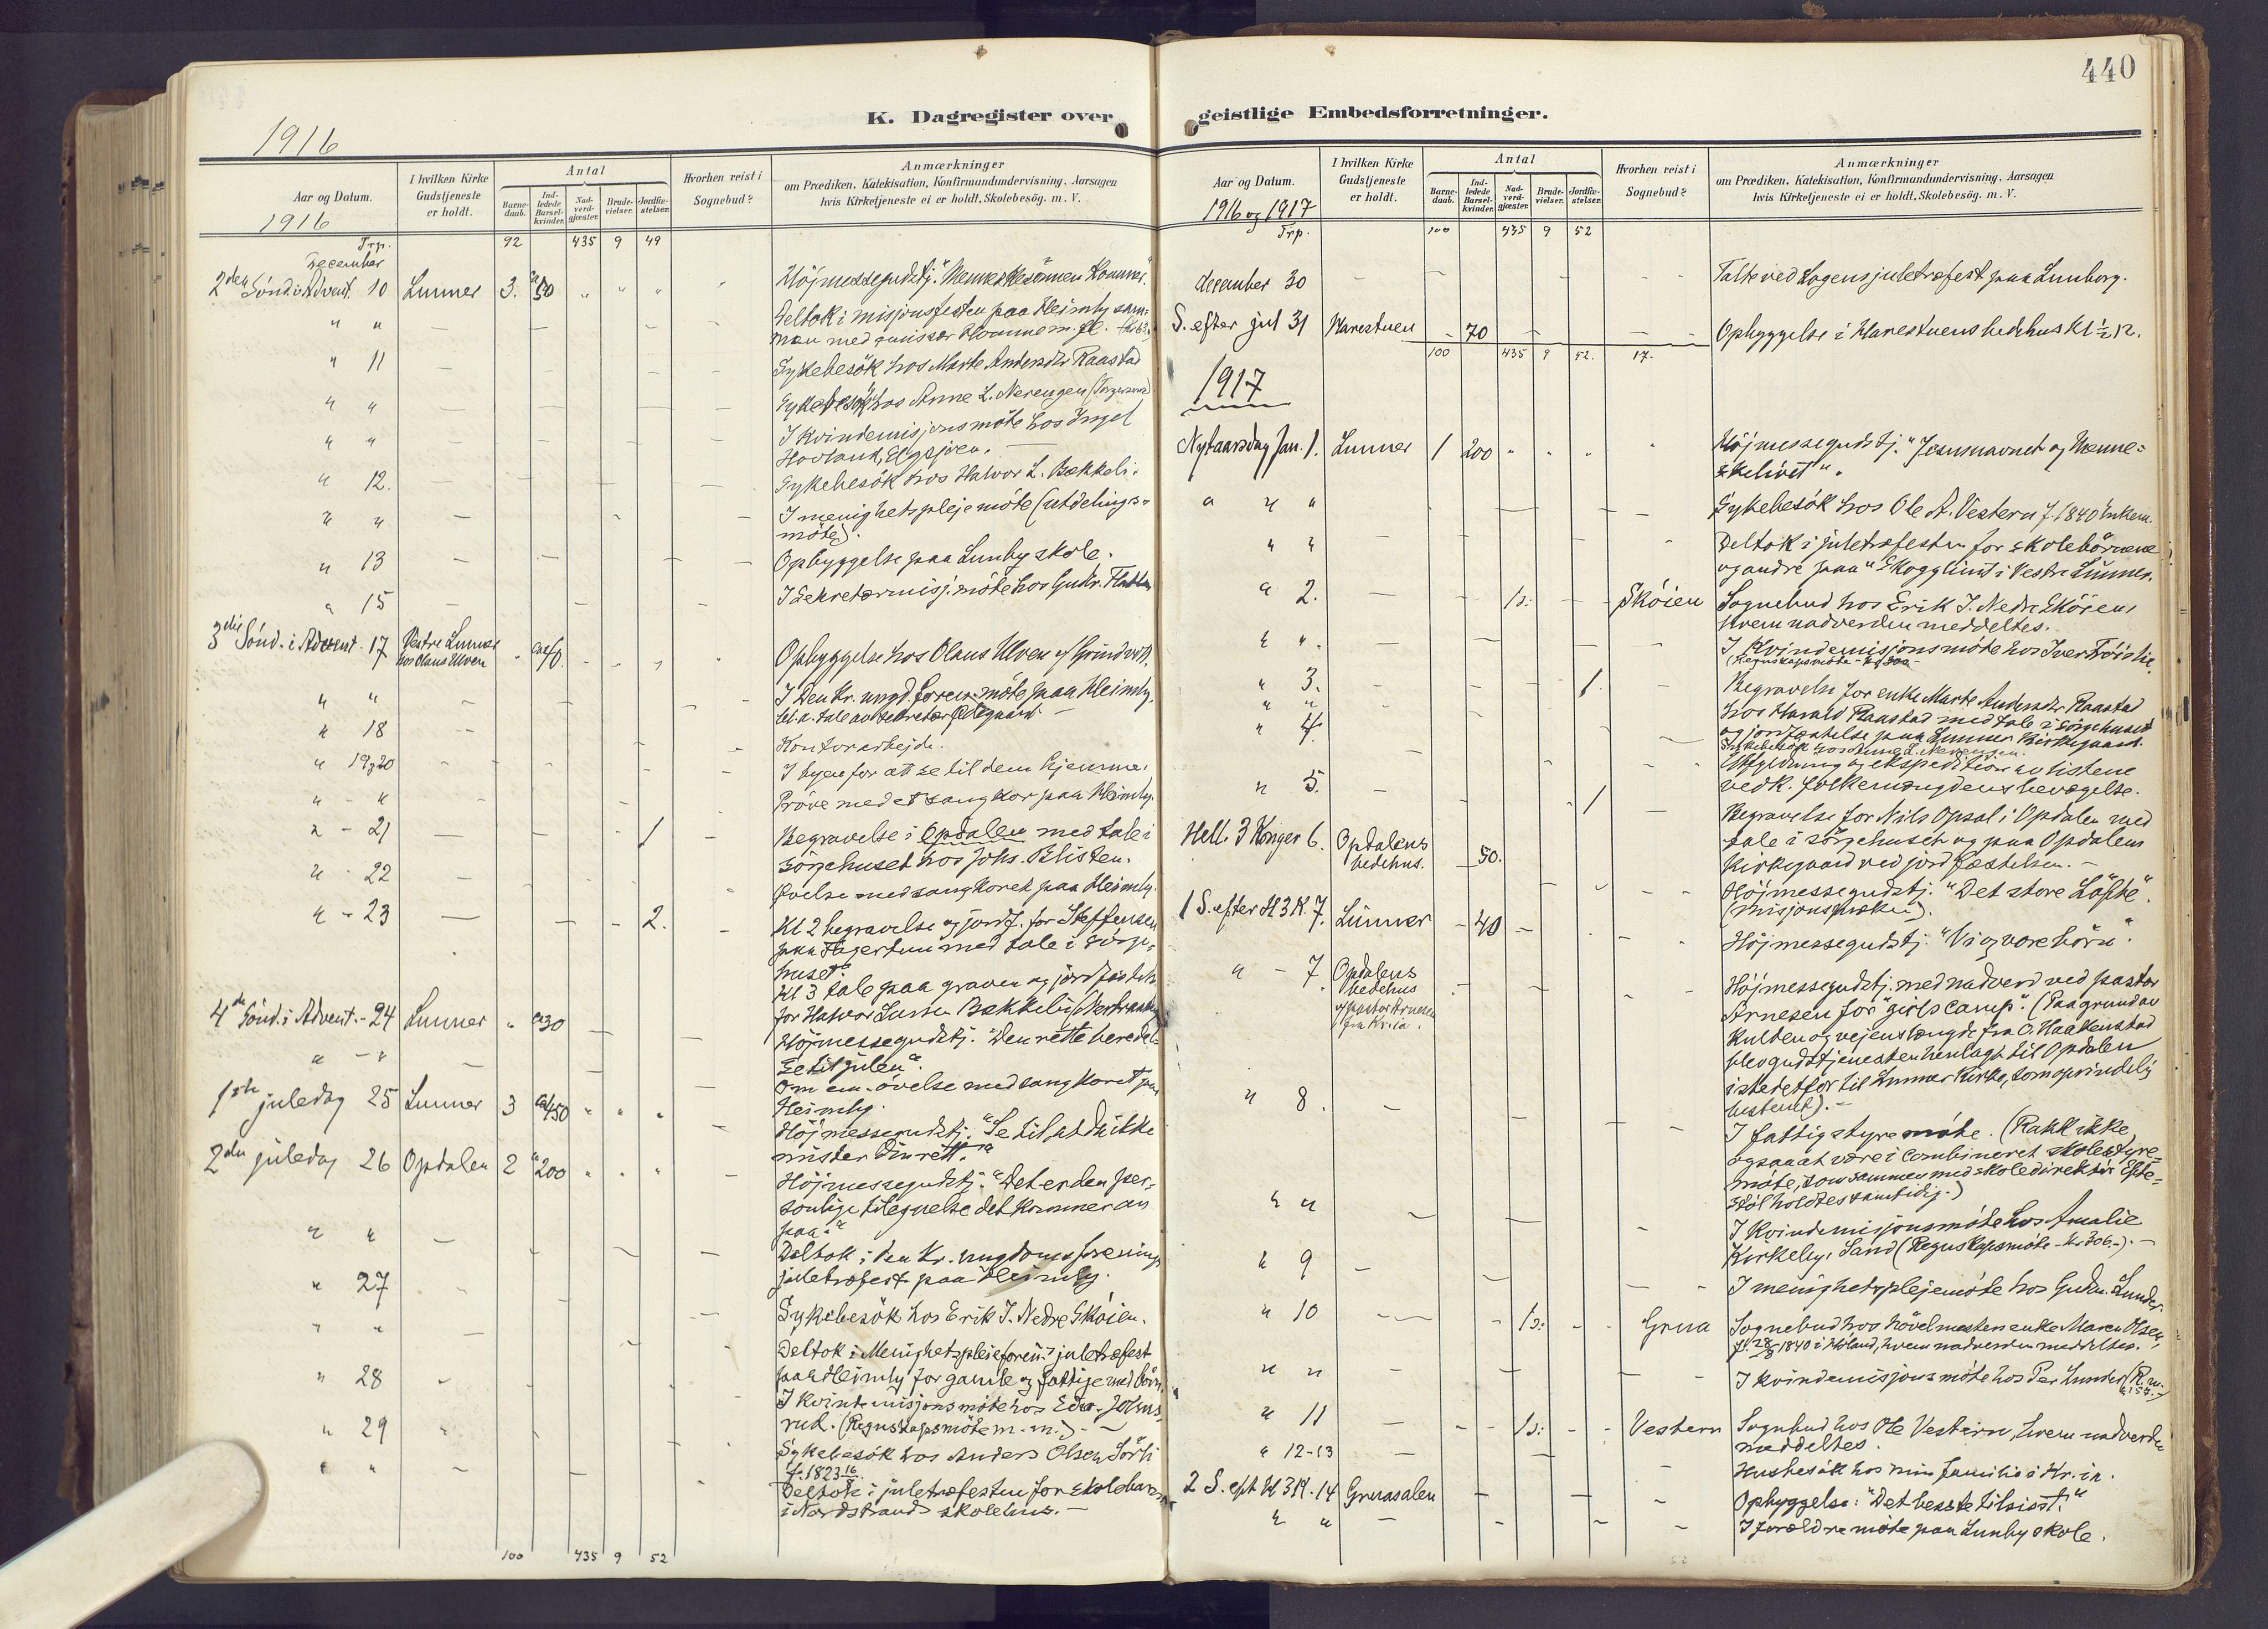 440
K. Dagregister over geistlige Embedsforretninger.
1916
Aar og Datum.
1916
I hvilken Kirke Gudstjeneste er holdt.
Antal
Barne-daab.
Ind-ledede Barsel-kvinder.
Nad-verd-gjæster.
Brude-vielser.
Jordfæ-stelser.
Hvorhen reist i Sognebud?
Anmærkninger
om Prædiken, Katekisation, Konfirmandundervisning, Aarsagen
hvis Kirketjeneste ei er holdt, Skolebesög. m. V.
Trp. 92 435 9 49
December
2den Sönd. i Advent. 10 Lunner 3. ca 50 Höjmessegudstj. "Menneskesönnen kommer".
" " Deltok i misjonsfesten paa Heimly sam-
men med m. fl.
" 11 Sykebesök hos Marte Andersdtr Raastad
" " Sykebesök hos Anne L. Nerengen
" " I Kvindemisjonsmöte hos Ingel
Hovland, Elgsjöen.
" 12. Sykebesök hos Halvor L. Bækkeli.
" " I menighetspleje möte (utdelings-
möte).
" 13 Opbyggelse paa Lunby skole.
" 15 I Sekretærmisj. möte hos Gudr. Flatla
3die Sönd. i Advent. 17 Vestre Lunner
hos Olaus Ulven ca 40. Opbyggelse hos Olaus Ulven
" " I Den Kr. ungd. foren. möte paa Heimly,
bl. a. tale av sekretær
" 18 Kontorarbejde.
" 19 & 20 I byen for at se til dem hjemme.
" - " Pröve med et sangkor paa Heimly.
" - 21 1 Begravelse i Opdalen med tale i
Sörgehuset hos Johs. Blisten.
" - 22 Övelse med sangkoret paa Heimly.
" - 23 2. Kl 2 begravelse og jordf. for Steffensen
paa Fagertun med tale i sörge-
huset.
Kl 3 tale paa graven og jordfæstelse
for Halvor Larsen Bækkeli
4de Sönd. i Advent. - 24 Lunner " ca 30 Höjmessegudstj. "Den rette beredel-
se til julen".
" - " Om em. övelse med sangkoret paa
Heimly.
1ste juledag 25 Lunner 3 ca 450 " " " Höjmessegudstj. "Se til, at du ikke
mister din rett."
2den juledag 26 Opdalen 2 " 200 " " " Höjmessegudstj. "Det er den per-
sonlige tilegnelse det kommer an
paa."
" " Deltok i den Kr. ungdomsforenings
juletræfest paa Heimly.
" 27 Sykebesök hos Erik J. Nedre Sköien.
" " Deltok i Menighetsplejeforen.s juletræfest
paa Heimly for gamle og fattige med börn.
" 28 I Kvindemisjonsmöte hos Edv. Johns-
rud. (Regnskapsmöte m. m.) -
" 29 Sykebesök hos Anders Olsen Sörli
f. 1823 16/8.
" " Deltok i juletræfesten for skolebarn
i Nordstrands skolehus. -
100 435 9 52
Aar og Datum.
1916 og 1917
I hvilken Kirke Gudstjeneste er holdt.
Antal
Barne-daab.
Ind-ledede Barsel-kvinder.
Nad-verd-gjæster.
Brude-vielser.
Jordfæ-stelser.
Hvorhen reist i Sognebud?
Anmærkninger
om Prædiken, Katekisation, Konfirmandundervisning, Aarsagen
hvis Kirketjeneste ei er holdt, Skolebesög. m. V.
Trp. 100 435 9 52
December 30 Talte ved Logens juletræfest paa Lunborg.
S. efter jul 31 Harestuen - 70 Opbyggelse i Harestuens bedehus kl ½ 12.
100 435 9 52. 17.
1917
Nytaarsdag Jan. 1. Lunner 1 200 " " " Höjmessegudstj. "Jesusnavnet og Menne-
skelivet".
" " " Sykebesök hos Ole A. Vestern f. 1840 Enkem.
" " Deltok i juletræfesten for skolebörnene
og andre paa "Skogglimt" i Vestre Lunner.
" 2. 1 s: Sköien Sognebud hos Erik J. Nedre Sköien,
hvem nadverden meddeltes.
" ". I Kvindemisjonsmöte hos Iver Fröislie
(Regnskapsmöte - kr 300 -
" 3. 1. Begravelse for enke Marte Andersdtr Raastad
hos Harald Raastad med tale i sörgehuset
og jordfæstelse paa Lunner Kirkegaard.
" " Sykebesök hos Anne L. Nerengen.
" 4. Utfyldning og ekspedition av listene
vedk. folkemængdens bevægelse.
" 5. 1 Begravelse for Nils Opsal i Opdalen med
tale i sörgehuset og paa Opdalens
Kirkegaard ved jordfæstelsen. -
Hell. 3 Konger 6. Opdalens
bedehus. 50. Höjmessegudstj. "Det store Löfte".
(Misjonspræken).
1 S. efter H 3 K. 7. Lunner - 40 Höjmessegudstj. "Vi og vore börn".
" - 7. Opdalens
bedehus
v/ pastor Arnesen
fra Kr.ia. Höjmessegudstj. med nadverd ved pastor
Arnesen for "girls camp". (Paa grund av
kulden og vejens længde fra O. Haakenstad
blev gudstjenesten henlagt til Opdalen
istedetfor til Lunner Kirke, som oprindelig
bestemt). -
" 8. I fattigstyremöte. (Rakk ikke
ogsaa at være i Combineret skolestyre-
möte, som sammen med skoledirektör Efte-
stöl holdtes samtidig.)
" " I Kvindemisjonsmöte hos Amalie
Kirkeby, Sand (Regnskapsmöte - kr 306.-). -
" 9 I menighetsplejemöte hos Gudm. Lunder.
" 10 1 s: Grua Sognebud hos hövelmesters enke Maren Olsen,
f. 28/8 1840 i Höland, hvem nadverden meddeltes.
" " I kvindemisjonsmöte hos Per Lunder
" 11 1 s: Vestern Sognebud hos Ole Vestern, hvem nadverden
meddeltes.
" 12-13 Husbesök hos min familie i Kr.ia.
2 S. eft H 3 K. 14 Gruasalen Opbyggelse: "Det beste tilsist."
" " I forældremöte paa Lunby skole.